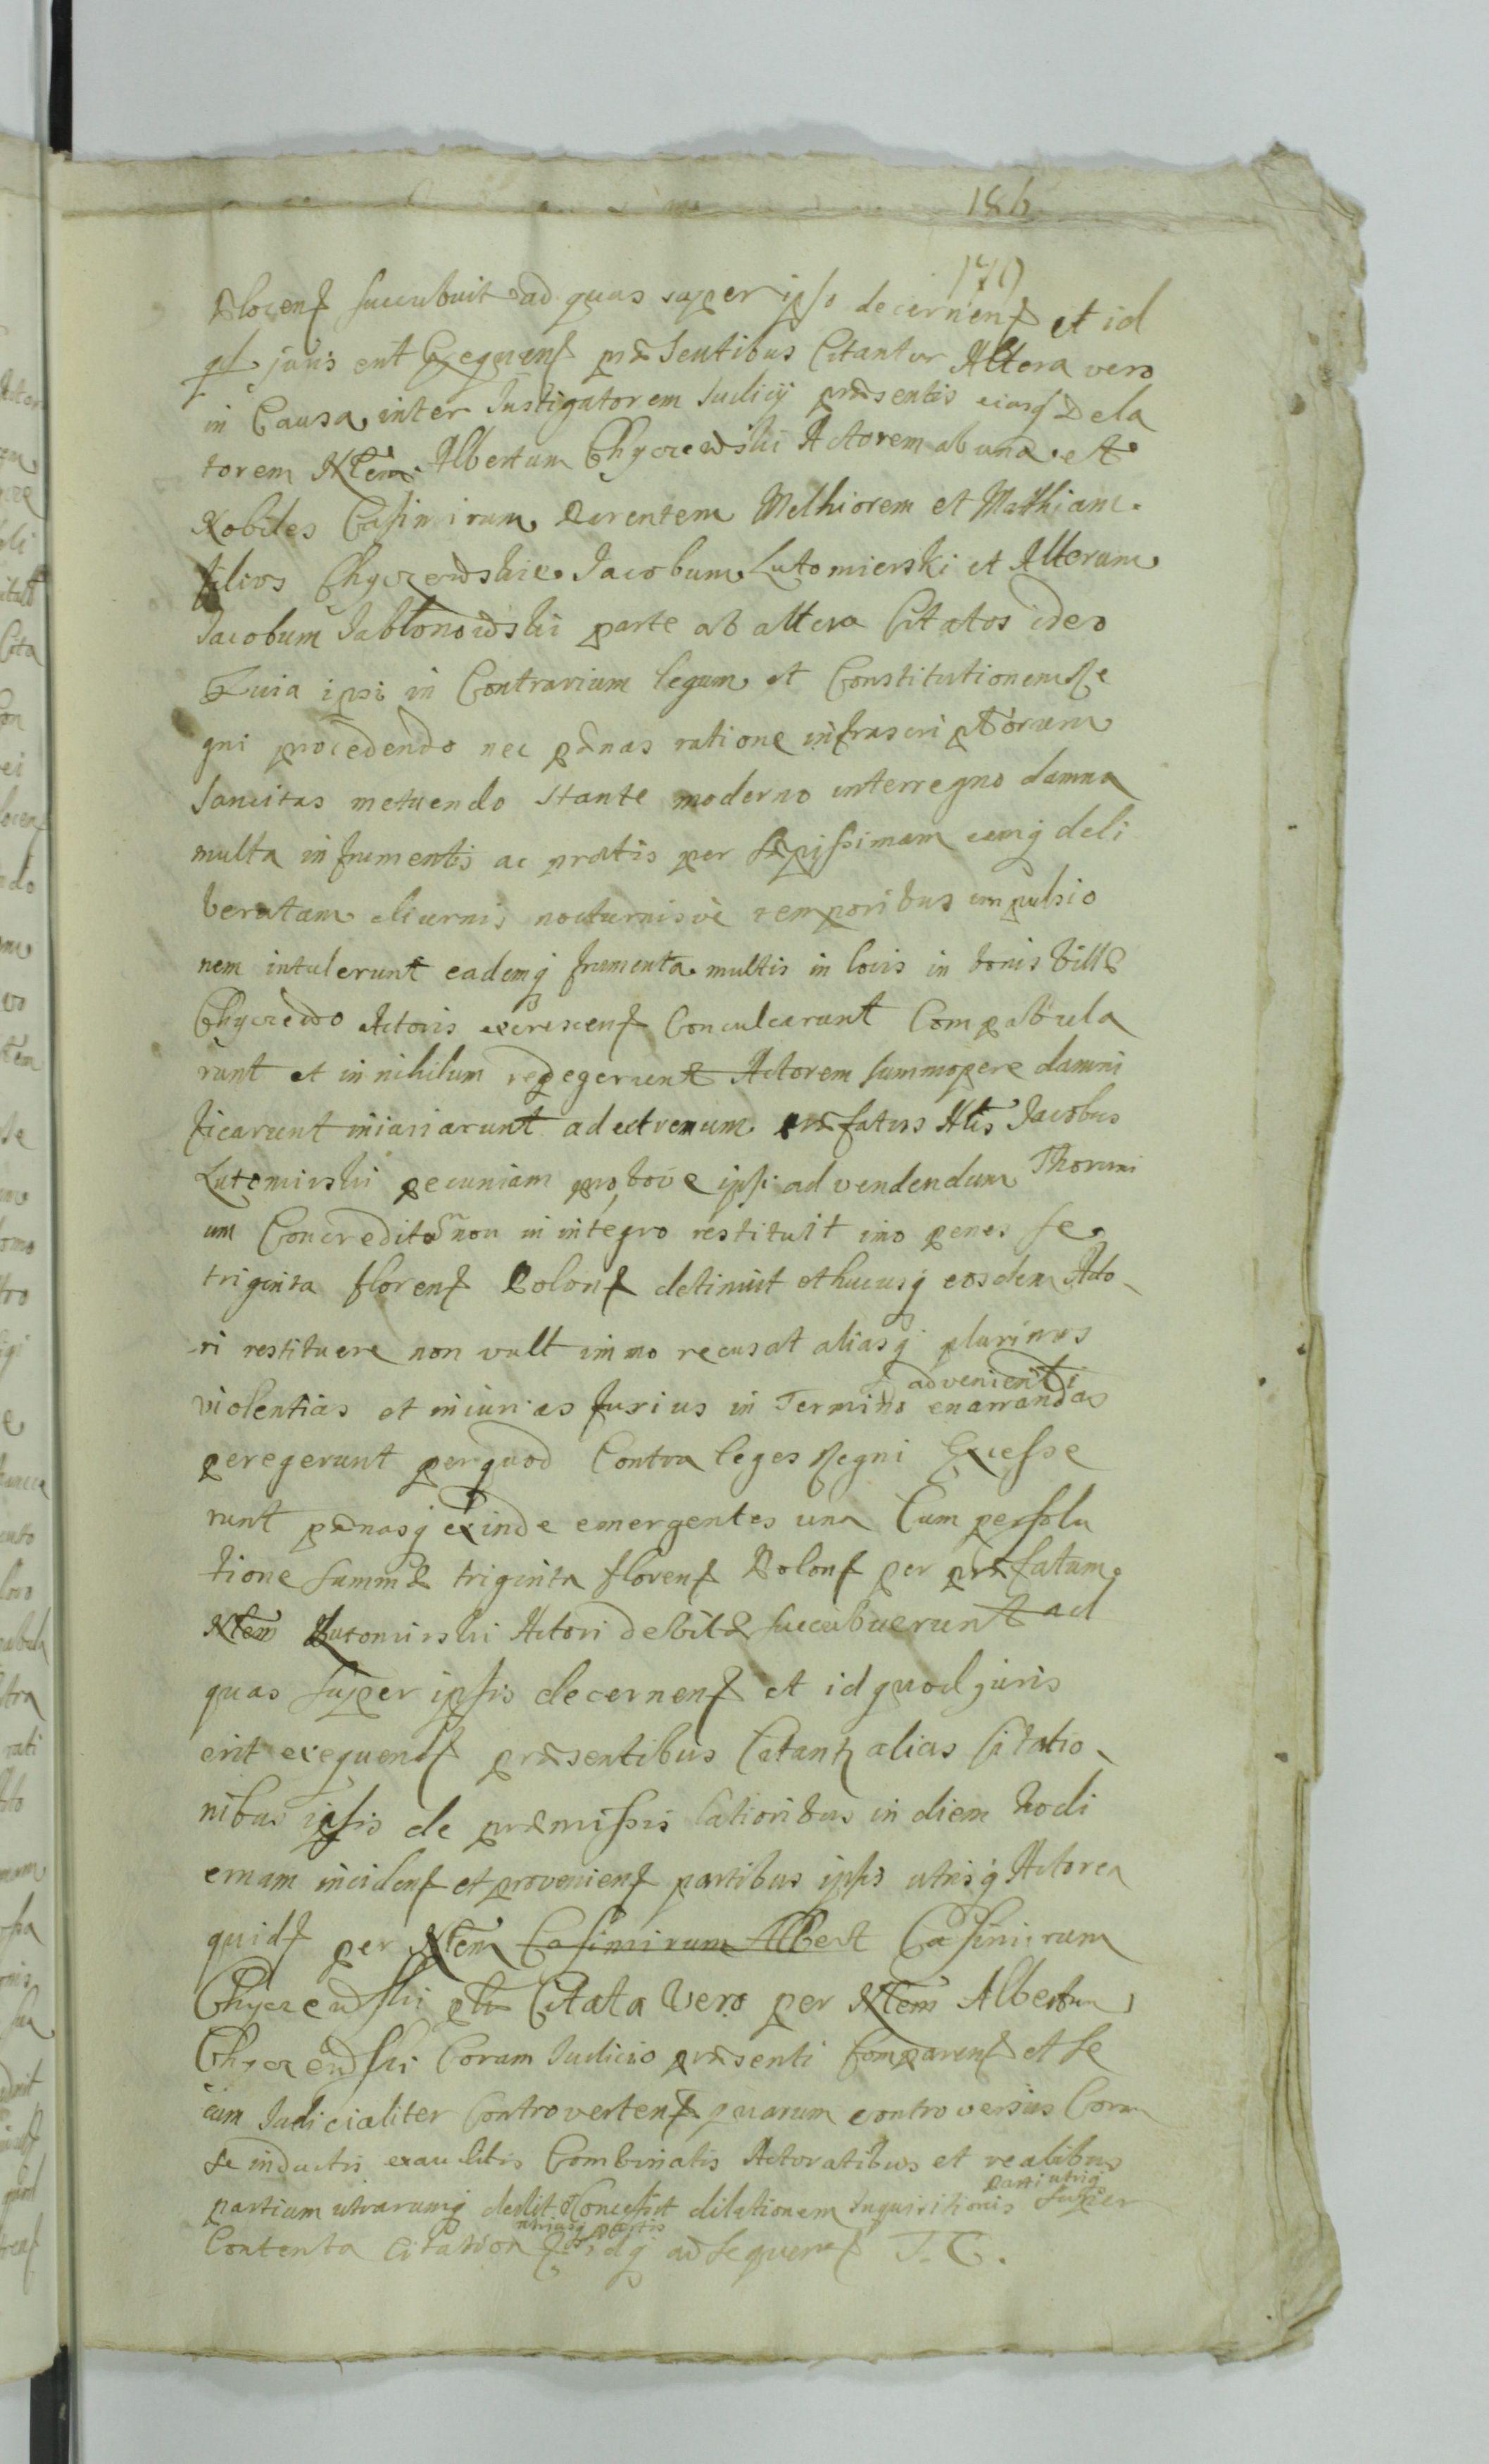 186
170
Plocenſ succubuit ad quas super ipso decernenſ et id
qd juris erit Exequenſ præsentibus Citantur Altera vero
in Causa inter Instigatorem Judicij præsentis eiusq Dela
torem Nlem Albertum Chyczewski Actorem ab una et
Nobiles Casimirum Parentem Melhiorem et Mathiam
filios Chyczewskie Jacobum Lutomierski et Alterum
Jacobum Jablonowski parte ab altera Citatos ideo
Quia ipsi in Contrarium legum et Constitutionem Re
gni procedendo nec pænas ratione infrascriptorum
sancitas metuendo stante moderno interregno damna
multa in frumentis ac pratis per sæpissimam eamq deli
beratam diurnis nocturnisve temporibus impulsio
nem intulerunt eademq frumenta multis in locis in bonis Villæ
Chyczewo Actoris excrescenſ Conculcarunt Compabula
runt et in nihilum redegerunt Actorem summopere damni
ficarunt iniuriarunt ad extremum præfatus Nlis Jacobus
Lutomirski pecuniam pro bove ipsi ad vendendum Thoruni
um Concredito non in integro restituit imo penes se
triginta florenſ Polonſ detinuit et hucusq eosdem Acto
ri restituere non vult immo recusat aliasq plurimas
violentias et iniurias fusius in Termino advenienti enarrandas
peregerunt per quod Contra leges Regni Excesse
runt pænasq exinde emergentes una Cum persolu
tione summæ triginta florenſ Polonſ per præfatum
Nlem Lutomirski Actori debitæ succubuerunt ad
quas super ipsis decernenſ et id quod juris
erit exequenſ præsentibus Citantur alias Citatio
nibus ipsis de præmissis latioribus in diem hodi
ernam incidenſ et provenienſ partibus ipsis utrisq Actorea
quidſ per Nlem Casimirum Albert Casimirum
Chyczewski Citata Vero per Nlem Albertum
Chyczewski Coram Judicio præsenti Comparenſ et se
cum Judicialiter Controvertenſ quarum controversiis Coram
se inductis exauditis Combinatis Actoratibus et realibus
partium utrarumq dedit et Concessit dilationem Inquisitionis parti utriq super
Contenta Citation utriusq partis idq adsequenſ T. C.